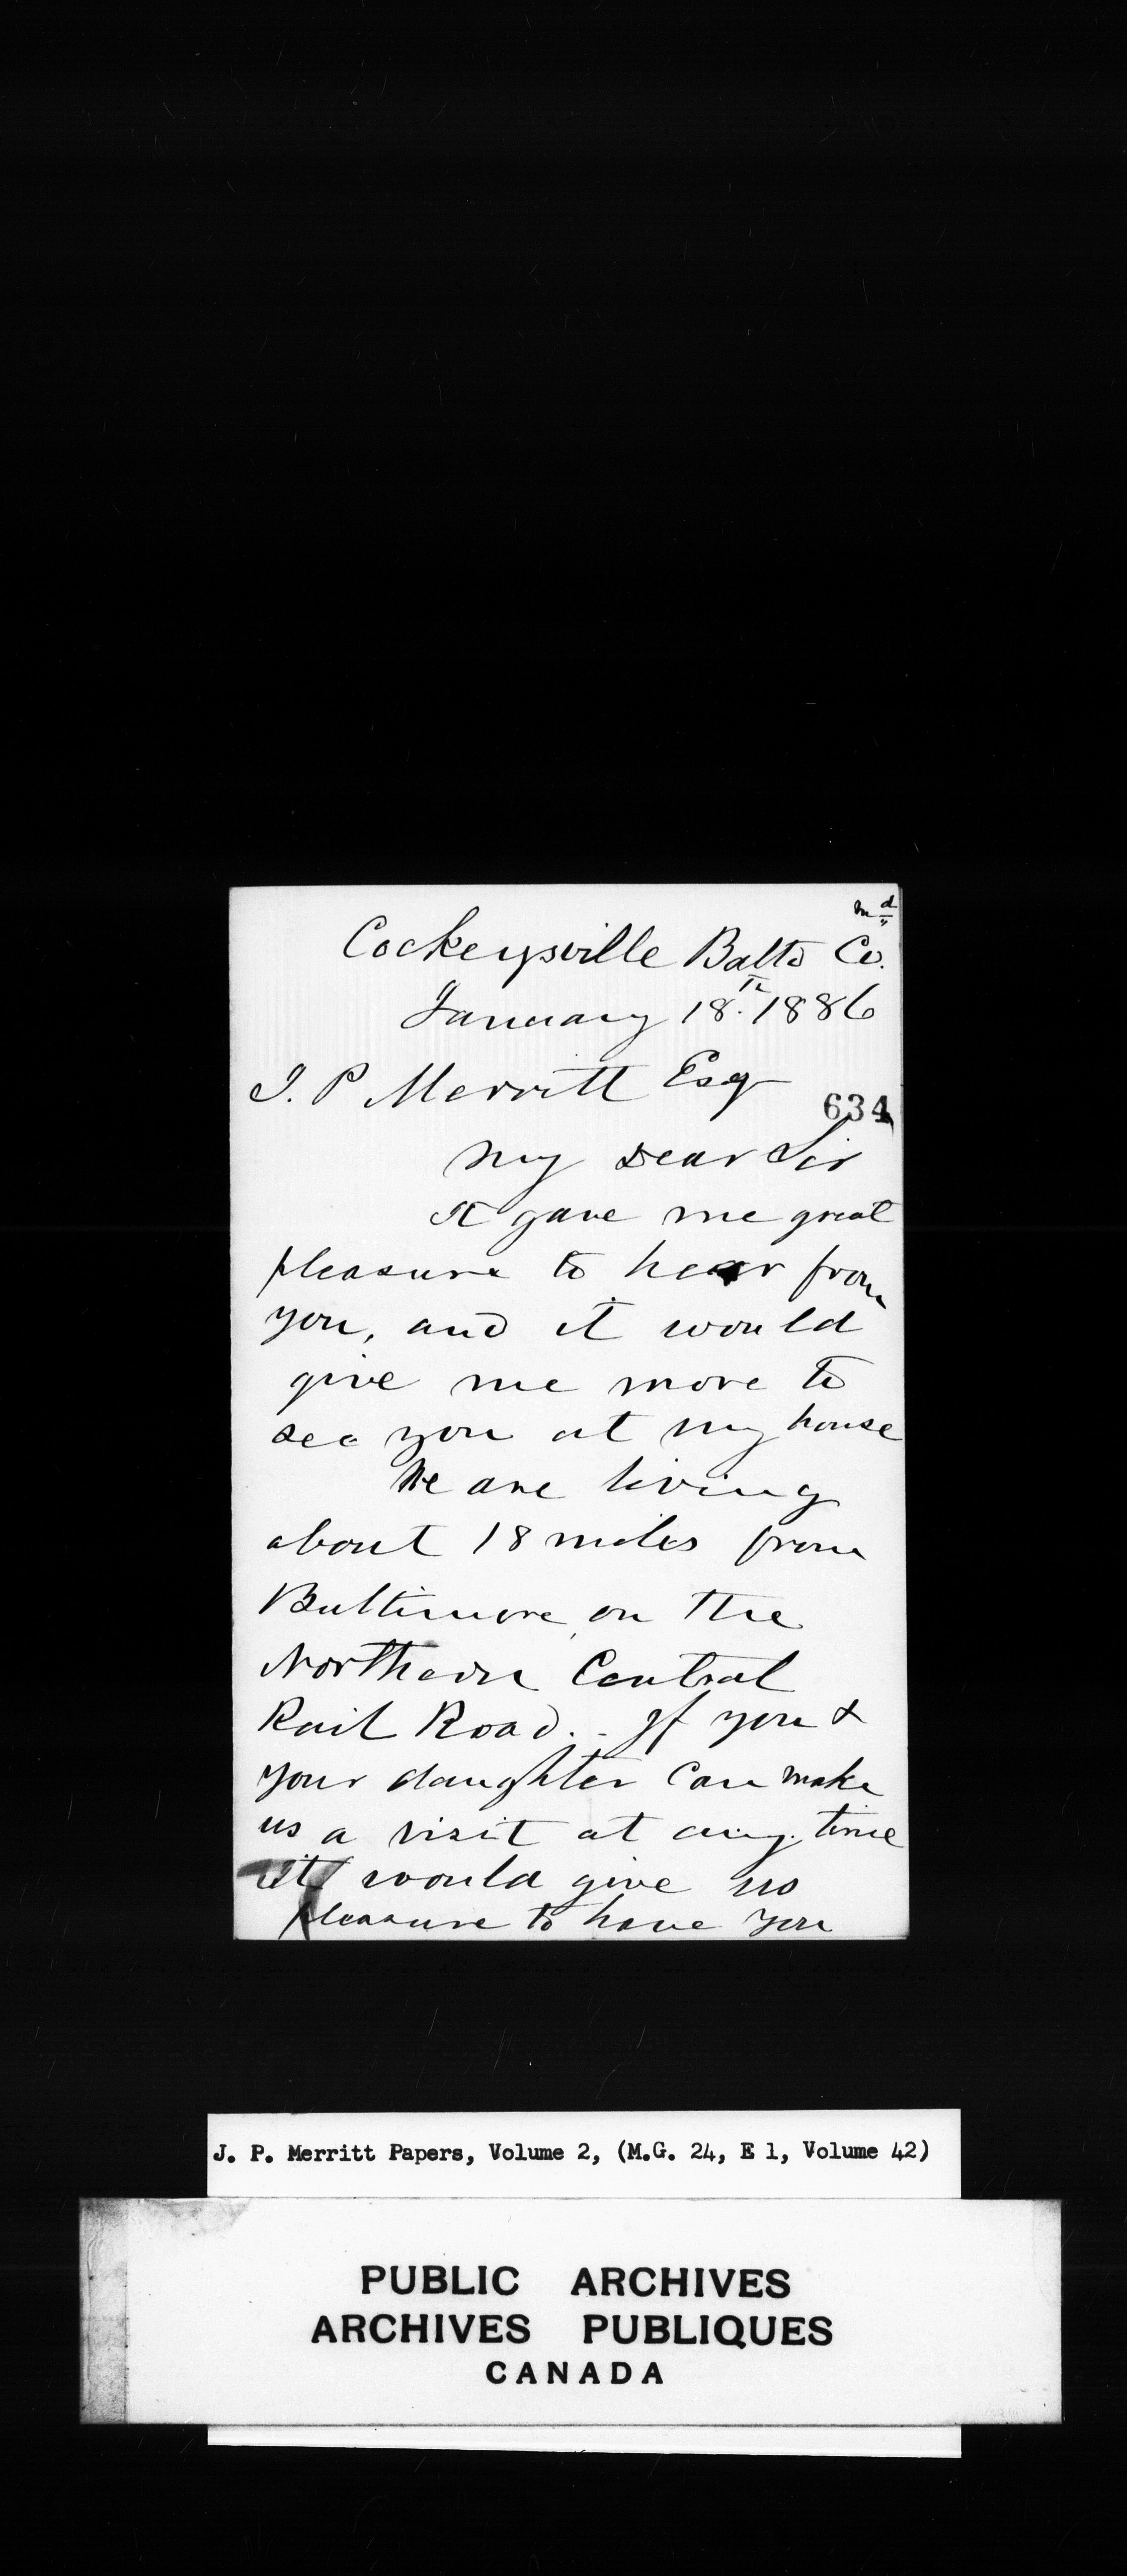 Md
Cockeysville Balto Co.
January 18th 1886
J. P Merritt Esq
634
My Dear Sir
It gave me great
pleasure to hear from
you, and it would
give me more to
see you at my house
We are living
about 18 miles from
Baltimore on the
Northern Central
Rail Road. - If you &
your daughter can make
us a visit at any time
it would give us
pleasure to have you
J. P. Merritt Papers, Volume 2, (M.G. 24, E 1, Volume 42)
PUBLIC ARCHIVES
ARCHIVES PUBLIQUES
CANADA